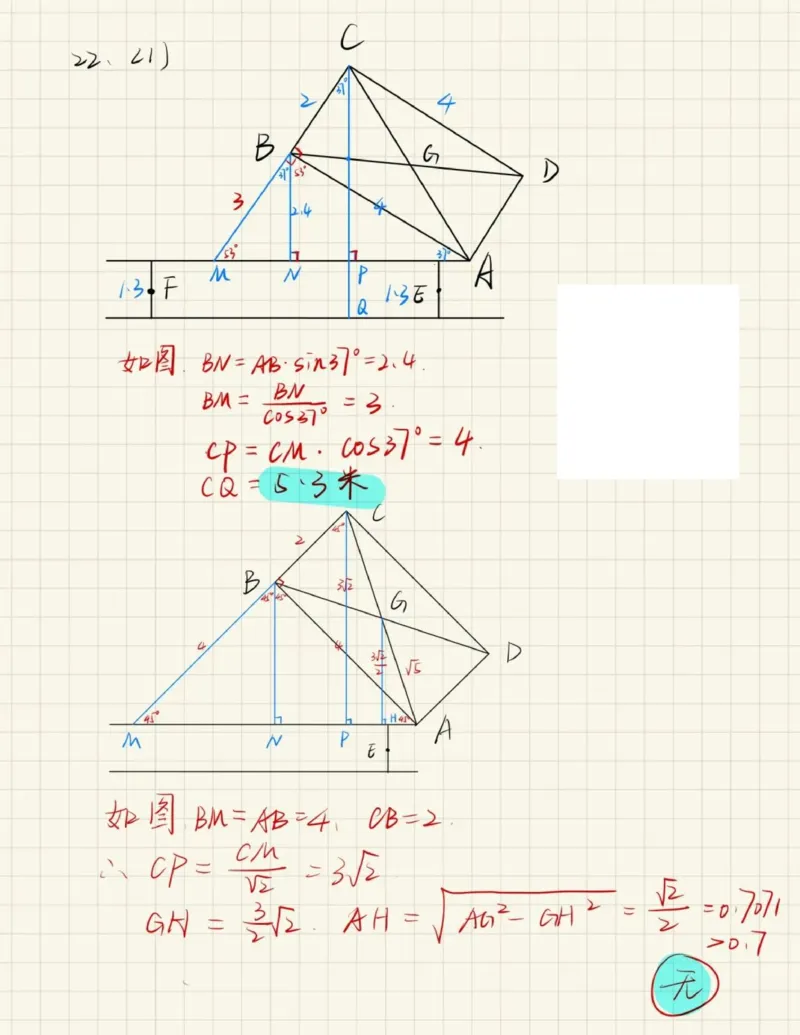 22. (1)
C
2
37°
4
B
G
D
37° 53°
3
2.4
4
53°
37°
M N P A
1.3 F Q 1.3 E
如图. BN = AB·sin37° = 2.4.
BM = BN/cos37° = 3.
CP = CM · cos37° = 4.
CQ = 5.3米
C
2
45°
B
3√2
45° 45°
G
4
4
3√2/2
√5
D
45°
H 45°
M N P A
E
如图. BM = AB = 4, CB = 2.
∴ CP = CM/√2 = 3√2
GH = 3/2√2. AH = √(AG² - GH²) = √2/2 = 0.7071
>0.7
无